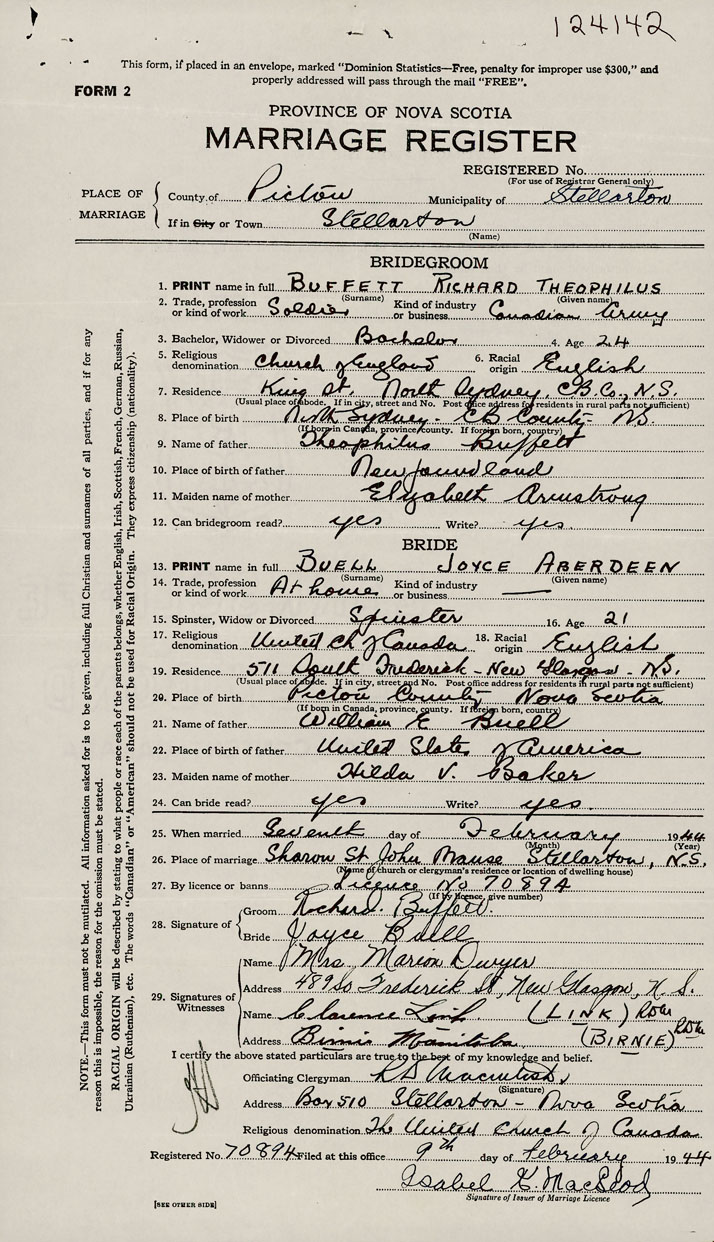 124142
This form, if placed in an envelope, marked "Dominion Statistics—Free, penalty for improper use $300," and
properly addressed will pass through the mail "FREE".
FORM 2
PROVINCE OF NOVA SCOTIA
MARRIAGE REGISTER
REGISTERED No.
(For use of Registrar General only)
PLACE OF MARRIAGE
County of Pictou Municipality of Stellarton
If in City or Town Stellarton
(Name)
BRIDEGROOM
1. PRINT name in full BUFFETT RICHARD THEOPHILUS
(Surname) (Given name)
2. Trade, profession or kind of work Soldier Kind of industry or business Canadian Army
3. Bachelor, Widower or Divorced Bachelor 4. Age 24
5. Religious denomination Church of England 6. Racial origin English
7. Residence King St. North Sydney, CB Co., N.S.
(Usual place of abode. If in city, street and No. Post office address for residents in rural parts not sufficient)
8. Place of birth North Sydney - CB County - NS
(If born in Canada, province, county. If foreign born, country)
9. Name of father Theophilus Buffett
10. Place of birth of father Newfoundland
11. Maiden name of mother Elizabeth Armstrong
12. Can bridegroom read? yes Write? yes
BRIDE
13. PRINT name in full BUELL JOYCE ABERDEEN
(Surname) (Given name)
14. Trade, profession or kind of work At home Kind of industry or business —
15. Spinster, Widow or Divorced Spinster 16. Age 21
17. Religious denomination United Ch of Canada 18. Racial origin English
19. Residence 511 South Frederick - New Glasgow - NS.
(Usual place of abode. If in city, street and No. Post office address for residents in rural parts not sufficient)
20. Place of birth Pictou County Nova Scotia
(If born in Canada, province, county. If foreign born, country)
21. Name of father William E Buell
22. Place of birth of father United States of America
23. Maiden name of mother Hilda V. Baker
24. Can bride read? yes Write? yes.
25. When married Seventh day of February 1944
(Month) (Year)
26. Place of marriage Sharon St. John Manse Stellarton, N.S.
(Name of church or clergyman's residence or location of dwelling house)
27. By licence or banns Licence No 70894
(If by licence, give number)
28. Signature of
Groom Richard. Buffett.
Bride Joyce Buell
29. Signatures of Witnesses
Name Mrs Marion Dwyer
Address 489 So Frederick St, New Glasgow, N.S.
Name Clarence Link (LINK)
Address Birnie Manitoba (BIRNIE)
I certify the above stated particulars are true to the best of my knowledge and belief.
Officiating Clergyman Macintosh
(Signature)
Address Box 510 Stellarton - Nova Scotia
Religious denomination The United Church of Canada
Registered No. 70894 Filed at this office 9th day of February 1944
Isabel G. MacLeod
Signature of Issuer of Marriage Licence
[SEE OTHER SIDE]
NOTE.—This form must not be mutilated. All information asked for is to be given, including full Christian and surnames of all parties, and if for any
reason this is impossible, the reason for the omission must be stated.
RACIAL ORIGIN will be described by stating to what people or race each of the parents belongs, whether English, Irish, Scottish, French, German, Russian,
Ukrainian (Ruthenian), etc. The words "Canadian" or "American" should not be used for Racial Origin. They express citizenship (nationality).